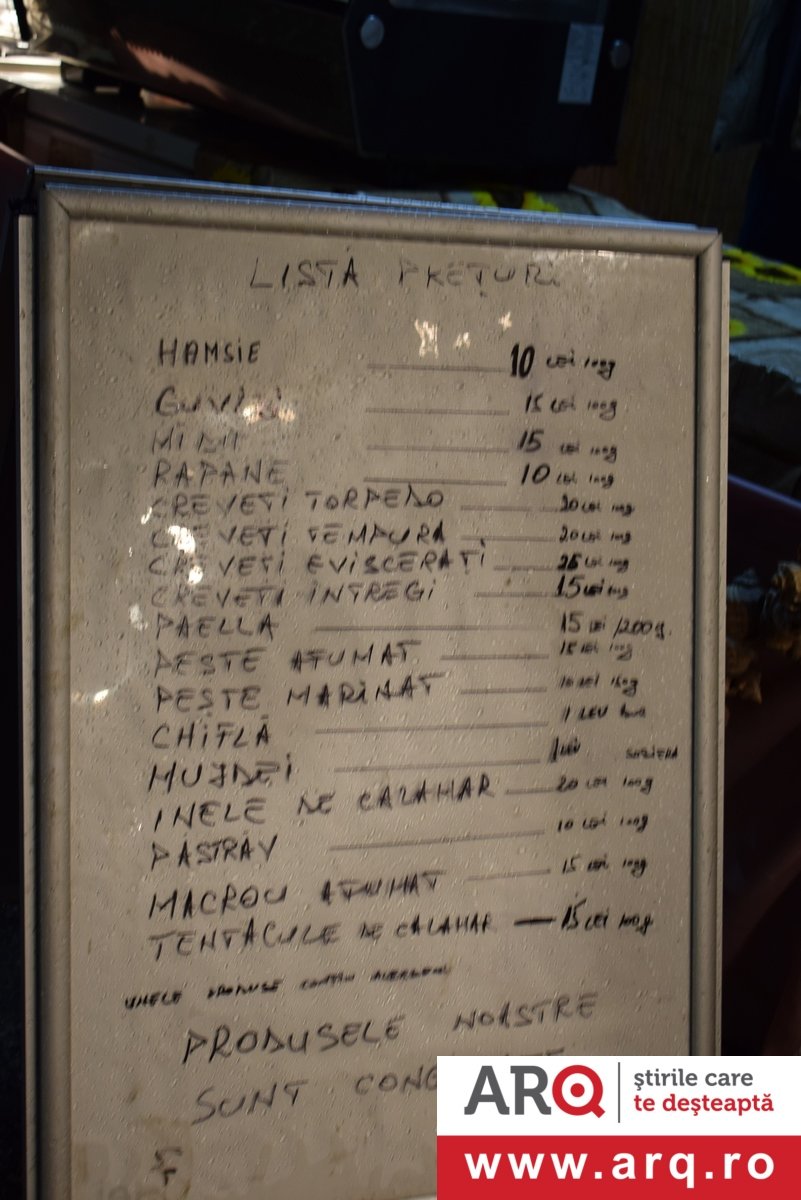 LISTĂ PREȚURI
HAMSIE 10 LEI 100g
GUVIZI 15 LEI 100g
MIDII 15 LEI 100g
RAPANE 10 LEI 100g
CREVEȚI TORPEDO 20 LEI 100g
CREVEȚI TEMPURA 20 LEI 100g
CREVEȚI EVISCERAȚI 25 LEI 100g
CREVEȚI ÎNTREGI 15 LEI 100g
PAELLA 15 LEI /200g.
PEȘTE AFUMAT 15 LEI 100g
PEȘTE MARINAT LEI
CHIFLĂ 1 LEU
MUJDEI 1 LEU
INELE DE CALAMAR 20 LEI 100g
PĂSTRĂV 10 LEI 100g
MACROU AFUMAT 15 LEI 100g
TENTACULE DE CALAMAR 15 LEI 100g
UNELE PRODUSE CONȚIN ALERGENI
PRODUSELE NOASTRE
SUNT
ARQ
știrile care
te deșteaptă
www.arq.ro